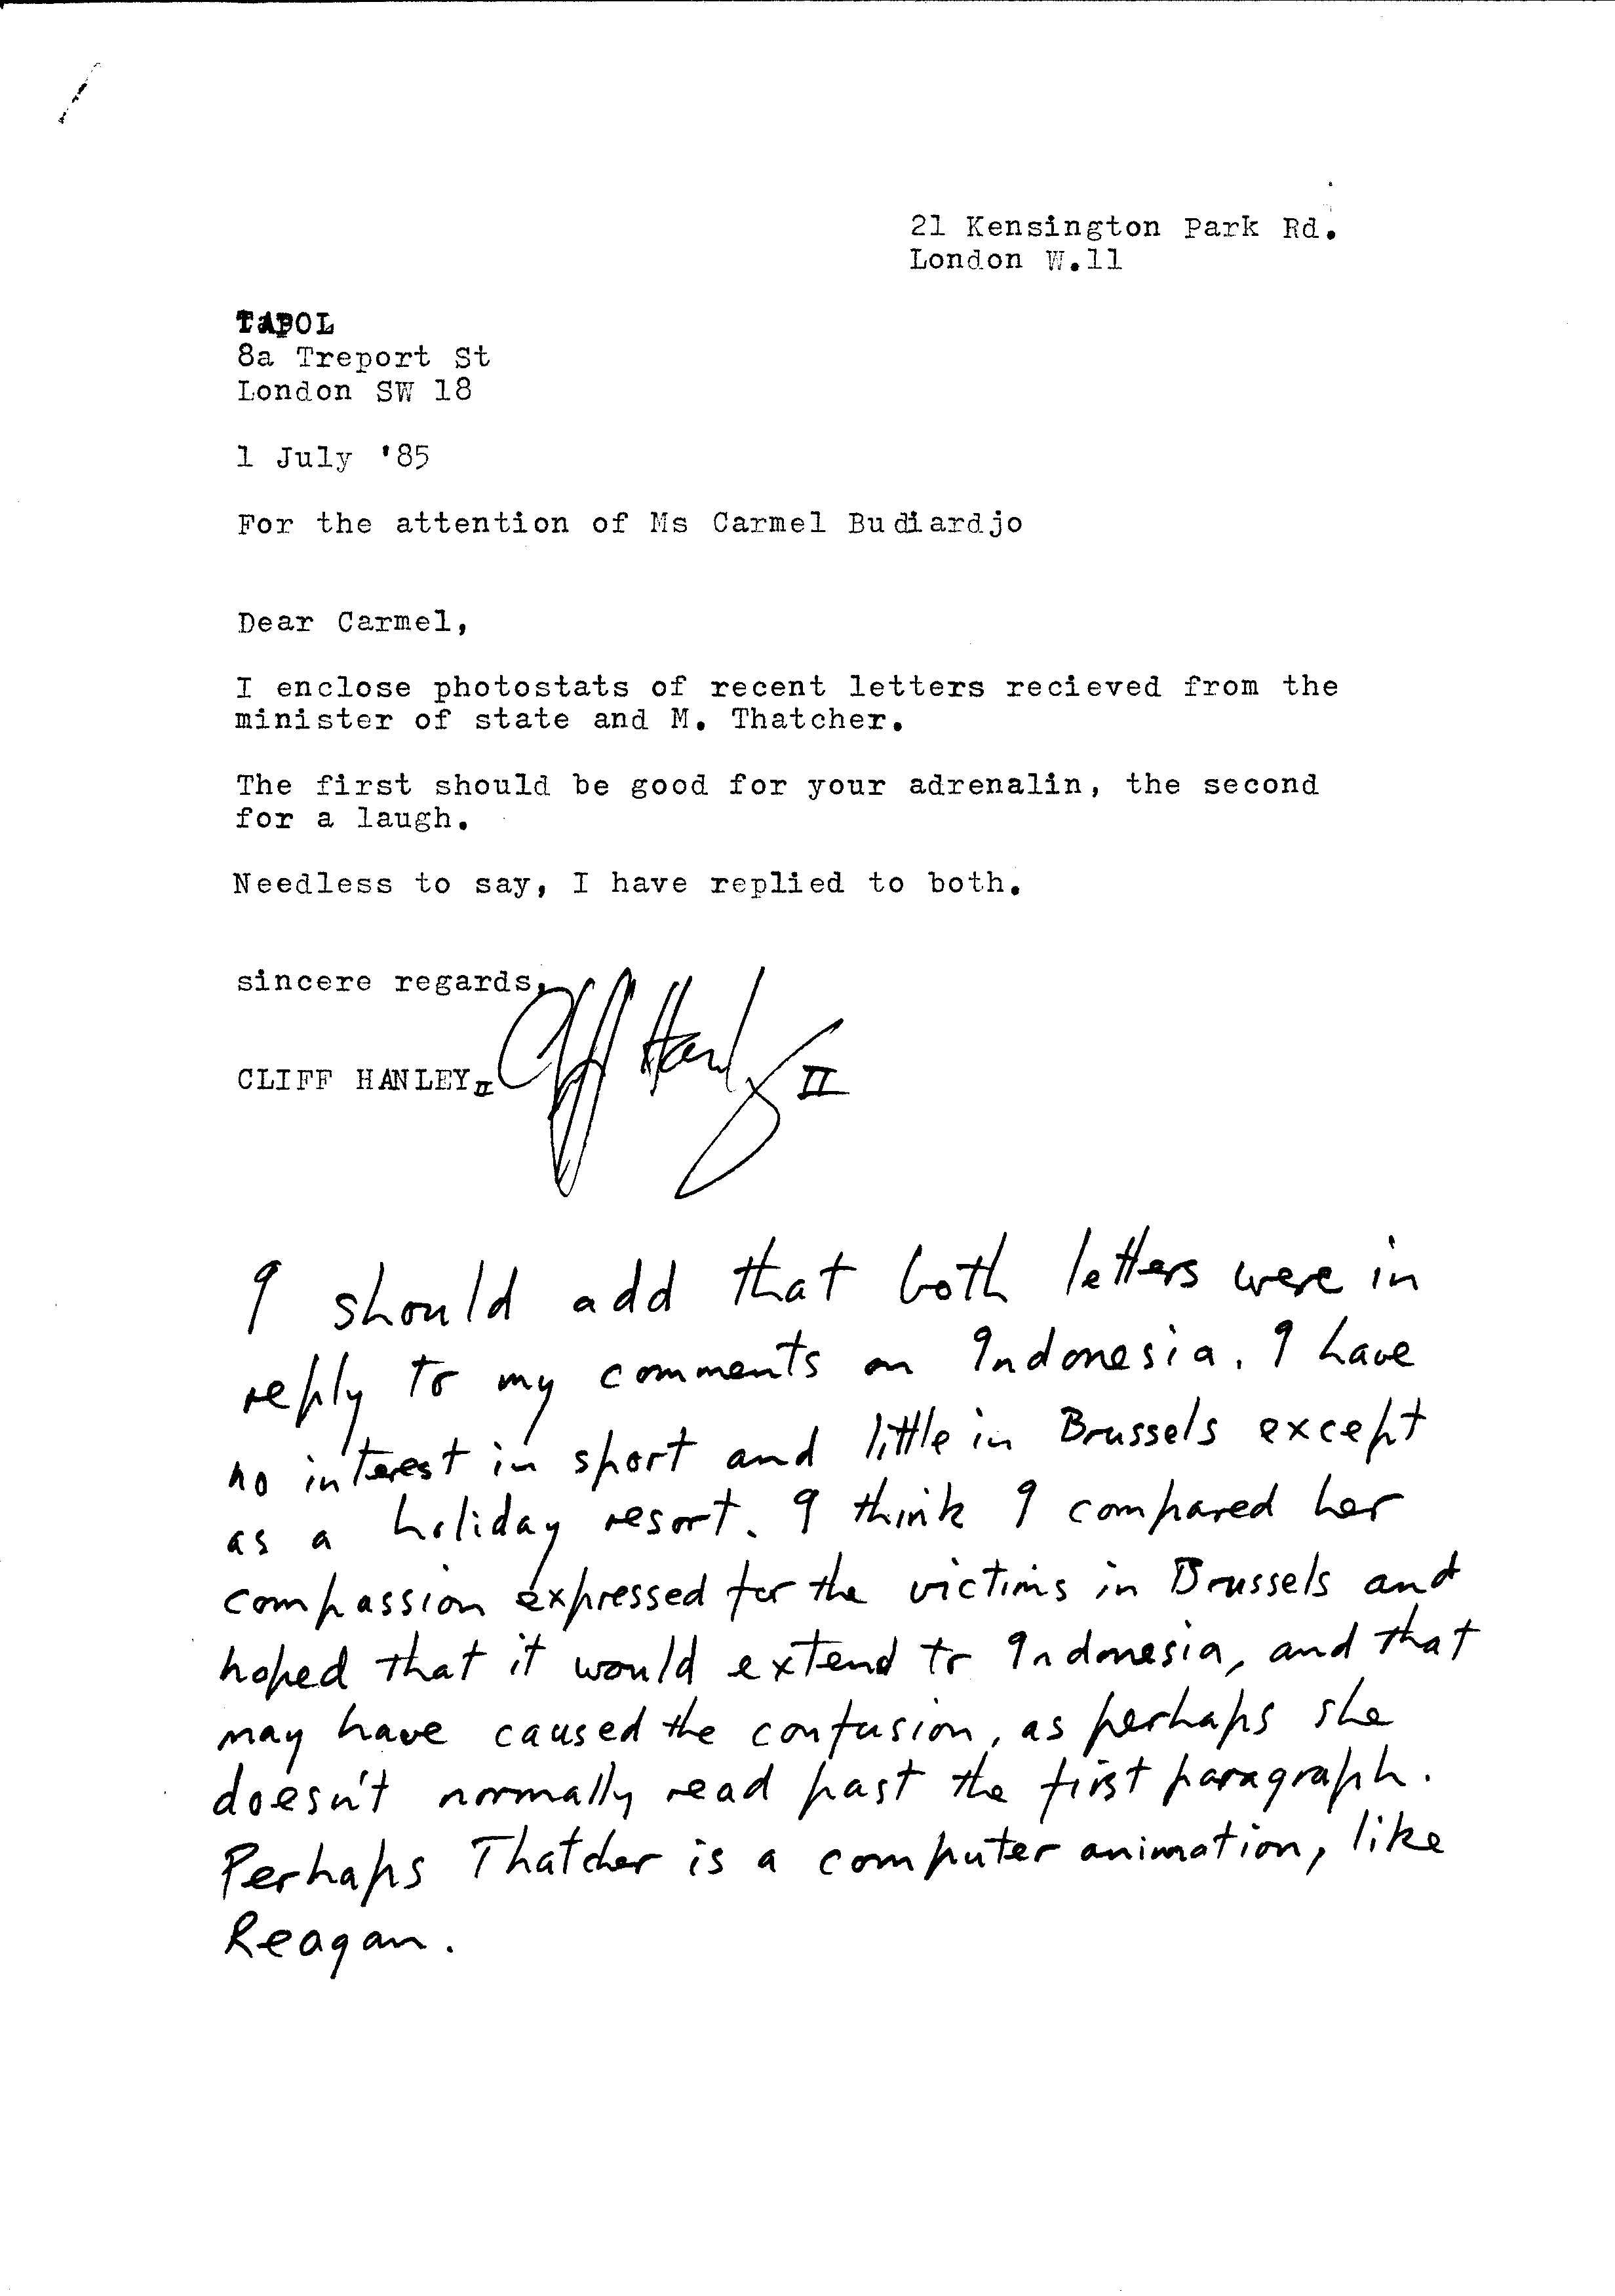 21 Kensington Park Rd.
London W.11
TAPOL
8a Treport St
London SW 18
1 July '85
For the attention of Ms Carmel Budiardjo
Dear Carmel,
I enclose photostats of recent letters recieved from the
minister of state and M. Thatcher.
The first should be good for your adrenalin, the second
for a laugh.
Needless to say, I have replied to both.
sincere regards,
CLIFF HANLEY II Cliff Hanley II
I should add that both letters were in
reply to my comments on Indonesia. I have
no interest in sport and little in Brussels except
as a holiday resort. I think I compared her
compassion expressed for the victims in Brussels and
hoped that it would extend to Indonesia, and that
may have caused the confusion, as perhaps she
doesn't normally read past the first paragraph.
Perhaps Thatcher is a computer animation, like
Reagan.